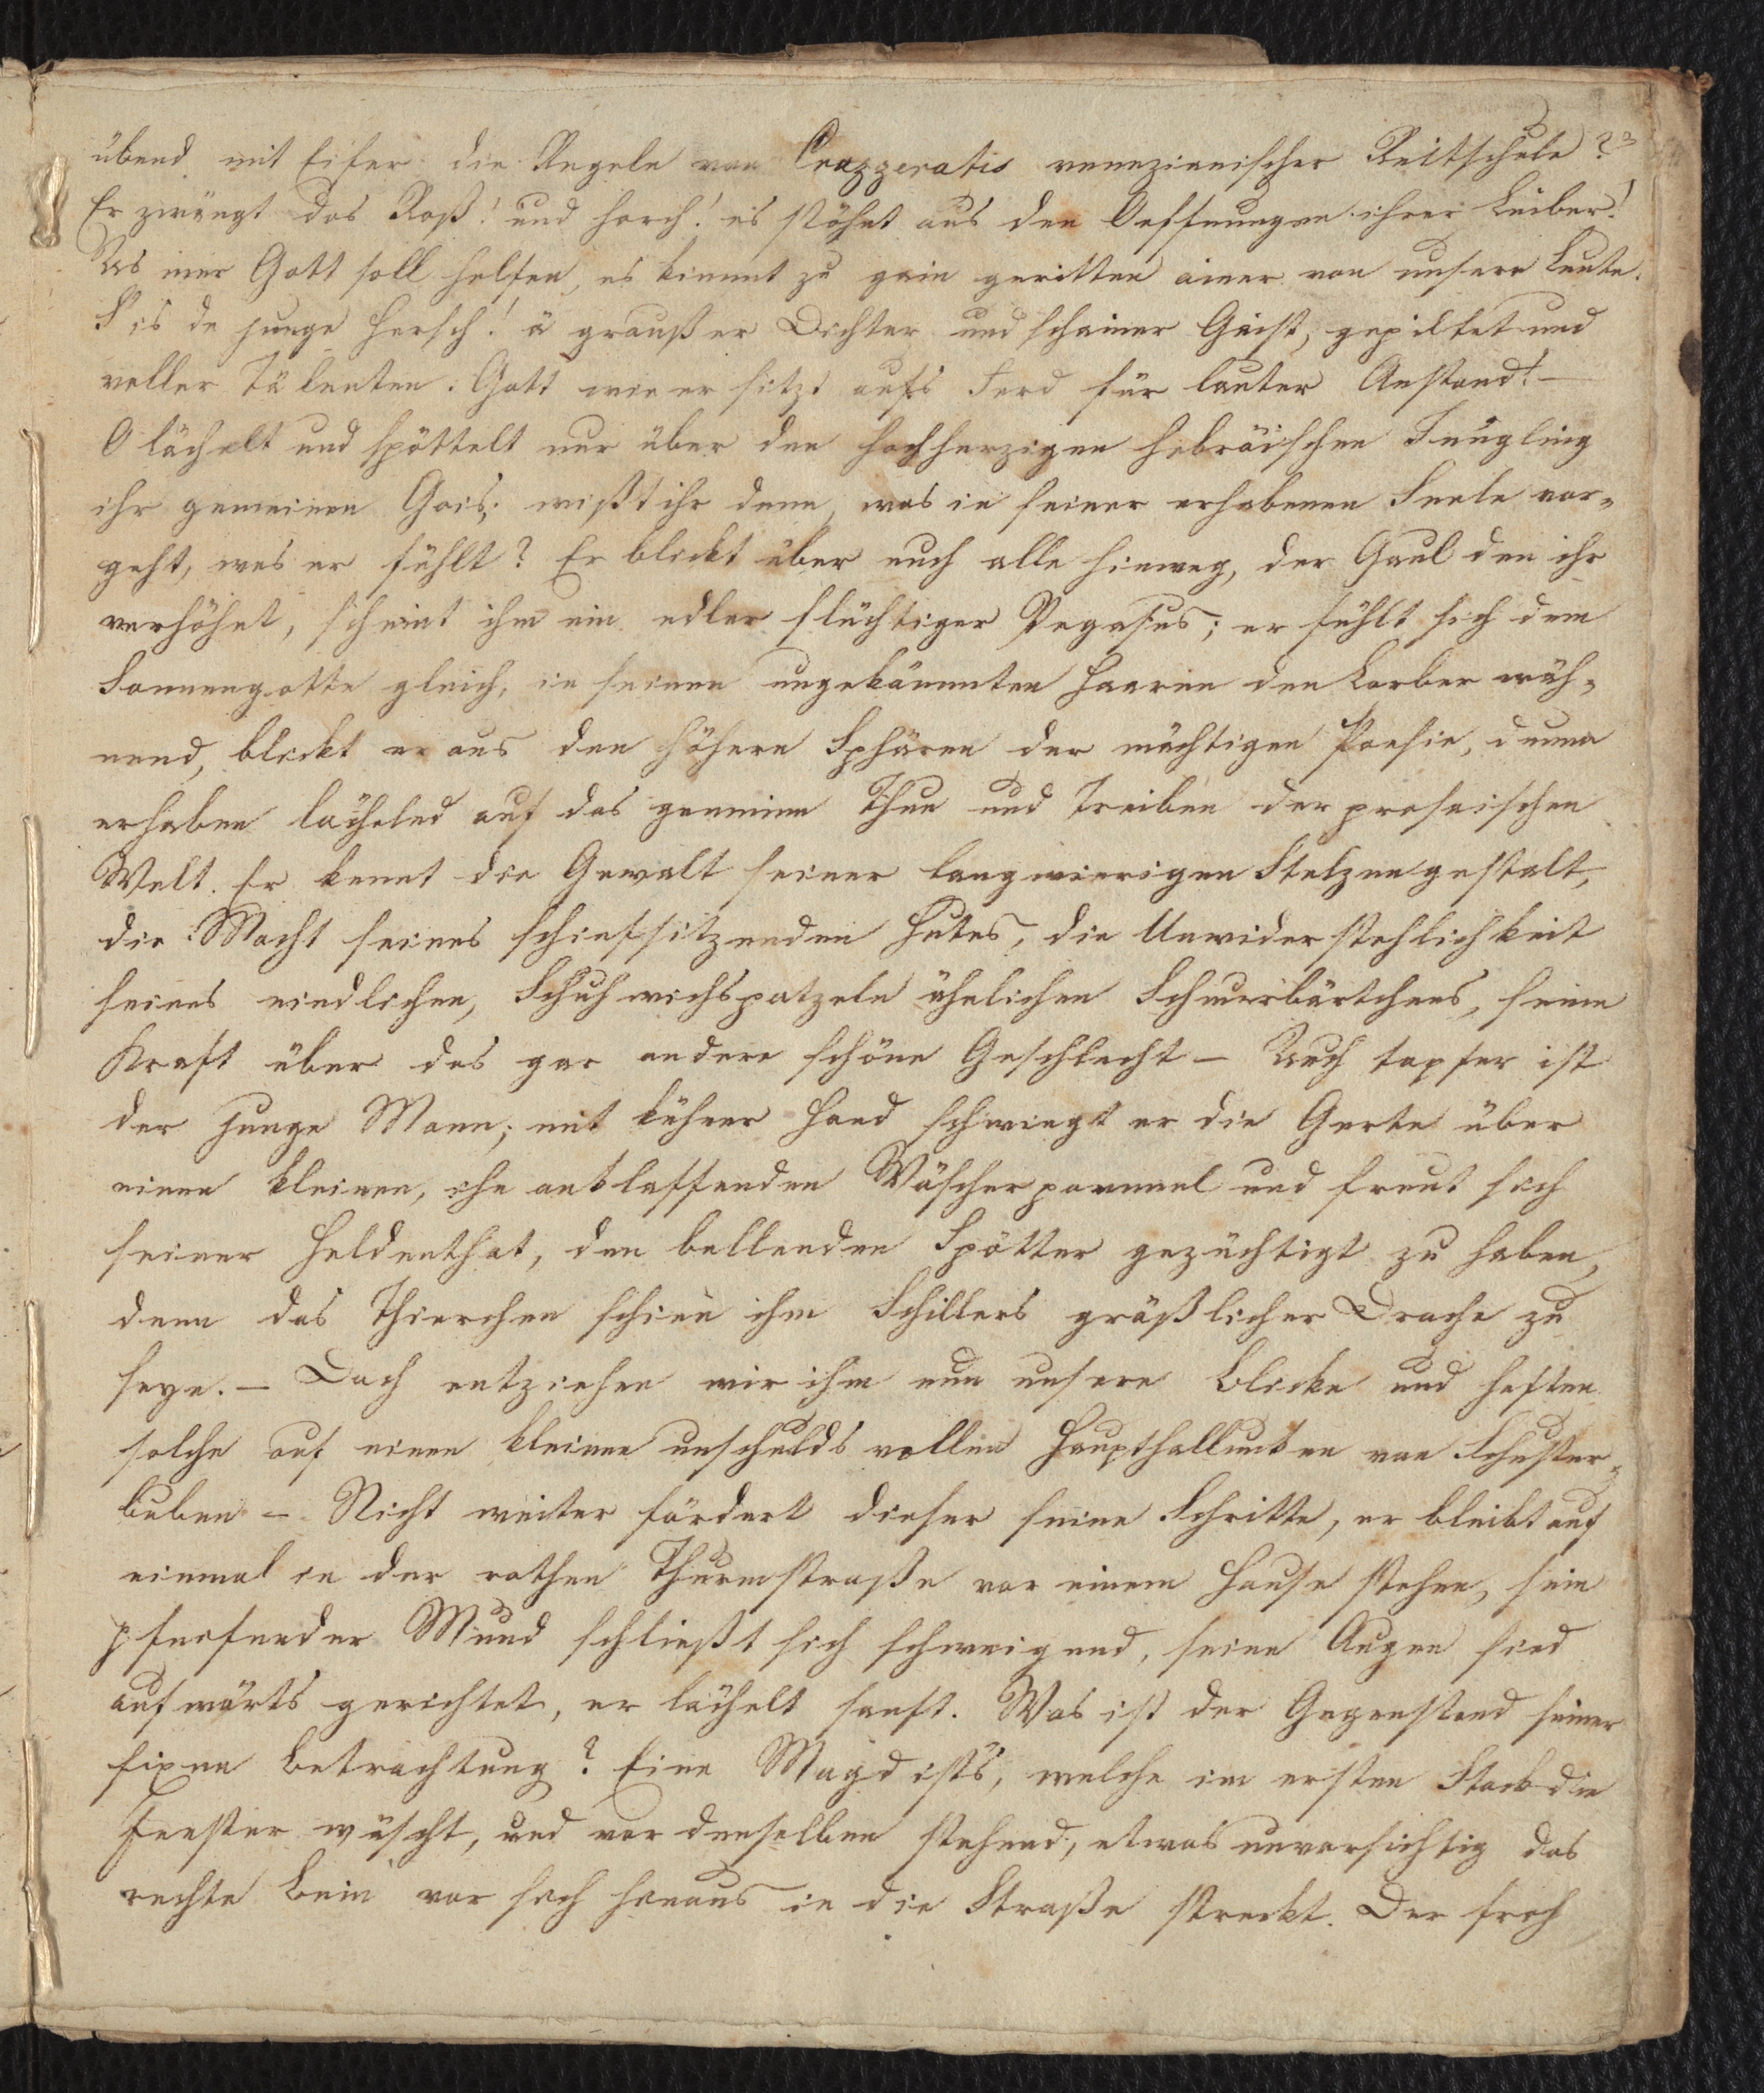 übend mit Eifer die Regeln von Crazzeratis venezianischer Reitschule?
Er zwängt das Roß! und horch! es stöhnt aus den Oeffnungen ihrer Leiber!
As mer Gott soll helfen, es kimmt zu gein geritten ainer von unsere Leute.
S'is de junge Hersch! ä graußer Dichter und schainer Gaist, gepildet und
voller Tälenten. Gott wie er sitzt aufs Ferd für lauter Anstand! —
O lächelt und spöttelt nur über den hochherzigen hebräischen Jüngling
ihr gemeinen Gois; wißt ihr denn, was in seiner erhabenen Seele vor-
geht, was er fühlt? Er blickt über euch alle hinweg, der Gaul den ihr
verhöhnt, scheint ihm ein edler flüchtiger Pegasus; er fühlt sich dem
Sonnengotte gleich, in seinen ungekämmten Haaren den Lorber wäh-
nend, blickt er aus den höhern Sphären der mächtigen Poesie, dumm
erhaben lächelnd auf das gemeine Thun und Treiben der prosaischen
Welt. Er kennt die Gewalt seiner langwierigen Stelzengestalt,
die Macht seines schiefsitzenden Hutes, die Unwiderstehlichkeit
seines niedlichen, Schuhwichspatzeln ähnlichen Schnurbärtchens, seine
Kraft über das gar andere schöne Geschlecht — Auch tapfer ist
der junge Mann; mit kühner Hand schwingt er die Gerte über
einen kleinen, ihn ankläffenden Wäscherpommel und freut sich
seiner Heldenthat, den bellenden Spötter gezüchtigt zu haben,
denn das Thierchen schien ihm Schillers gräßlicher Drache zu
seyn. — Doch entziehen wir ihm nun unsere Blicke und heften
solche auf einen kleinen unschuldsvollen Haupthallunken von Schuster-
buben — Nicht weiter fördert dieser seine Schritte, er bleibt auf
einmal in der rothen Thurmstraße vor einem Hause stehen, sein
pfeifender Mund schließt sich schweigend, seine Augen sind
aufwärts gerichtet, er lächelt sanft. Was ist der Gegenstand seiner
fixen Betrachtung? Eine Magd ist's, welche im ersten Stock die
Fenster wäscht, und vor denselben stehend, etwas unvorsichtig das
rechte Bein vor sich hinaus in die Straße streckt. Der froh